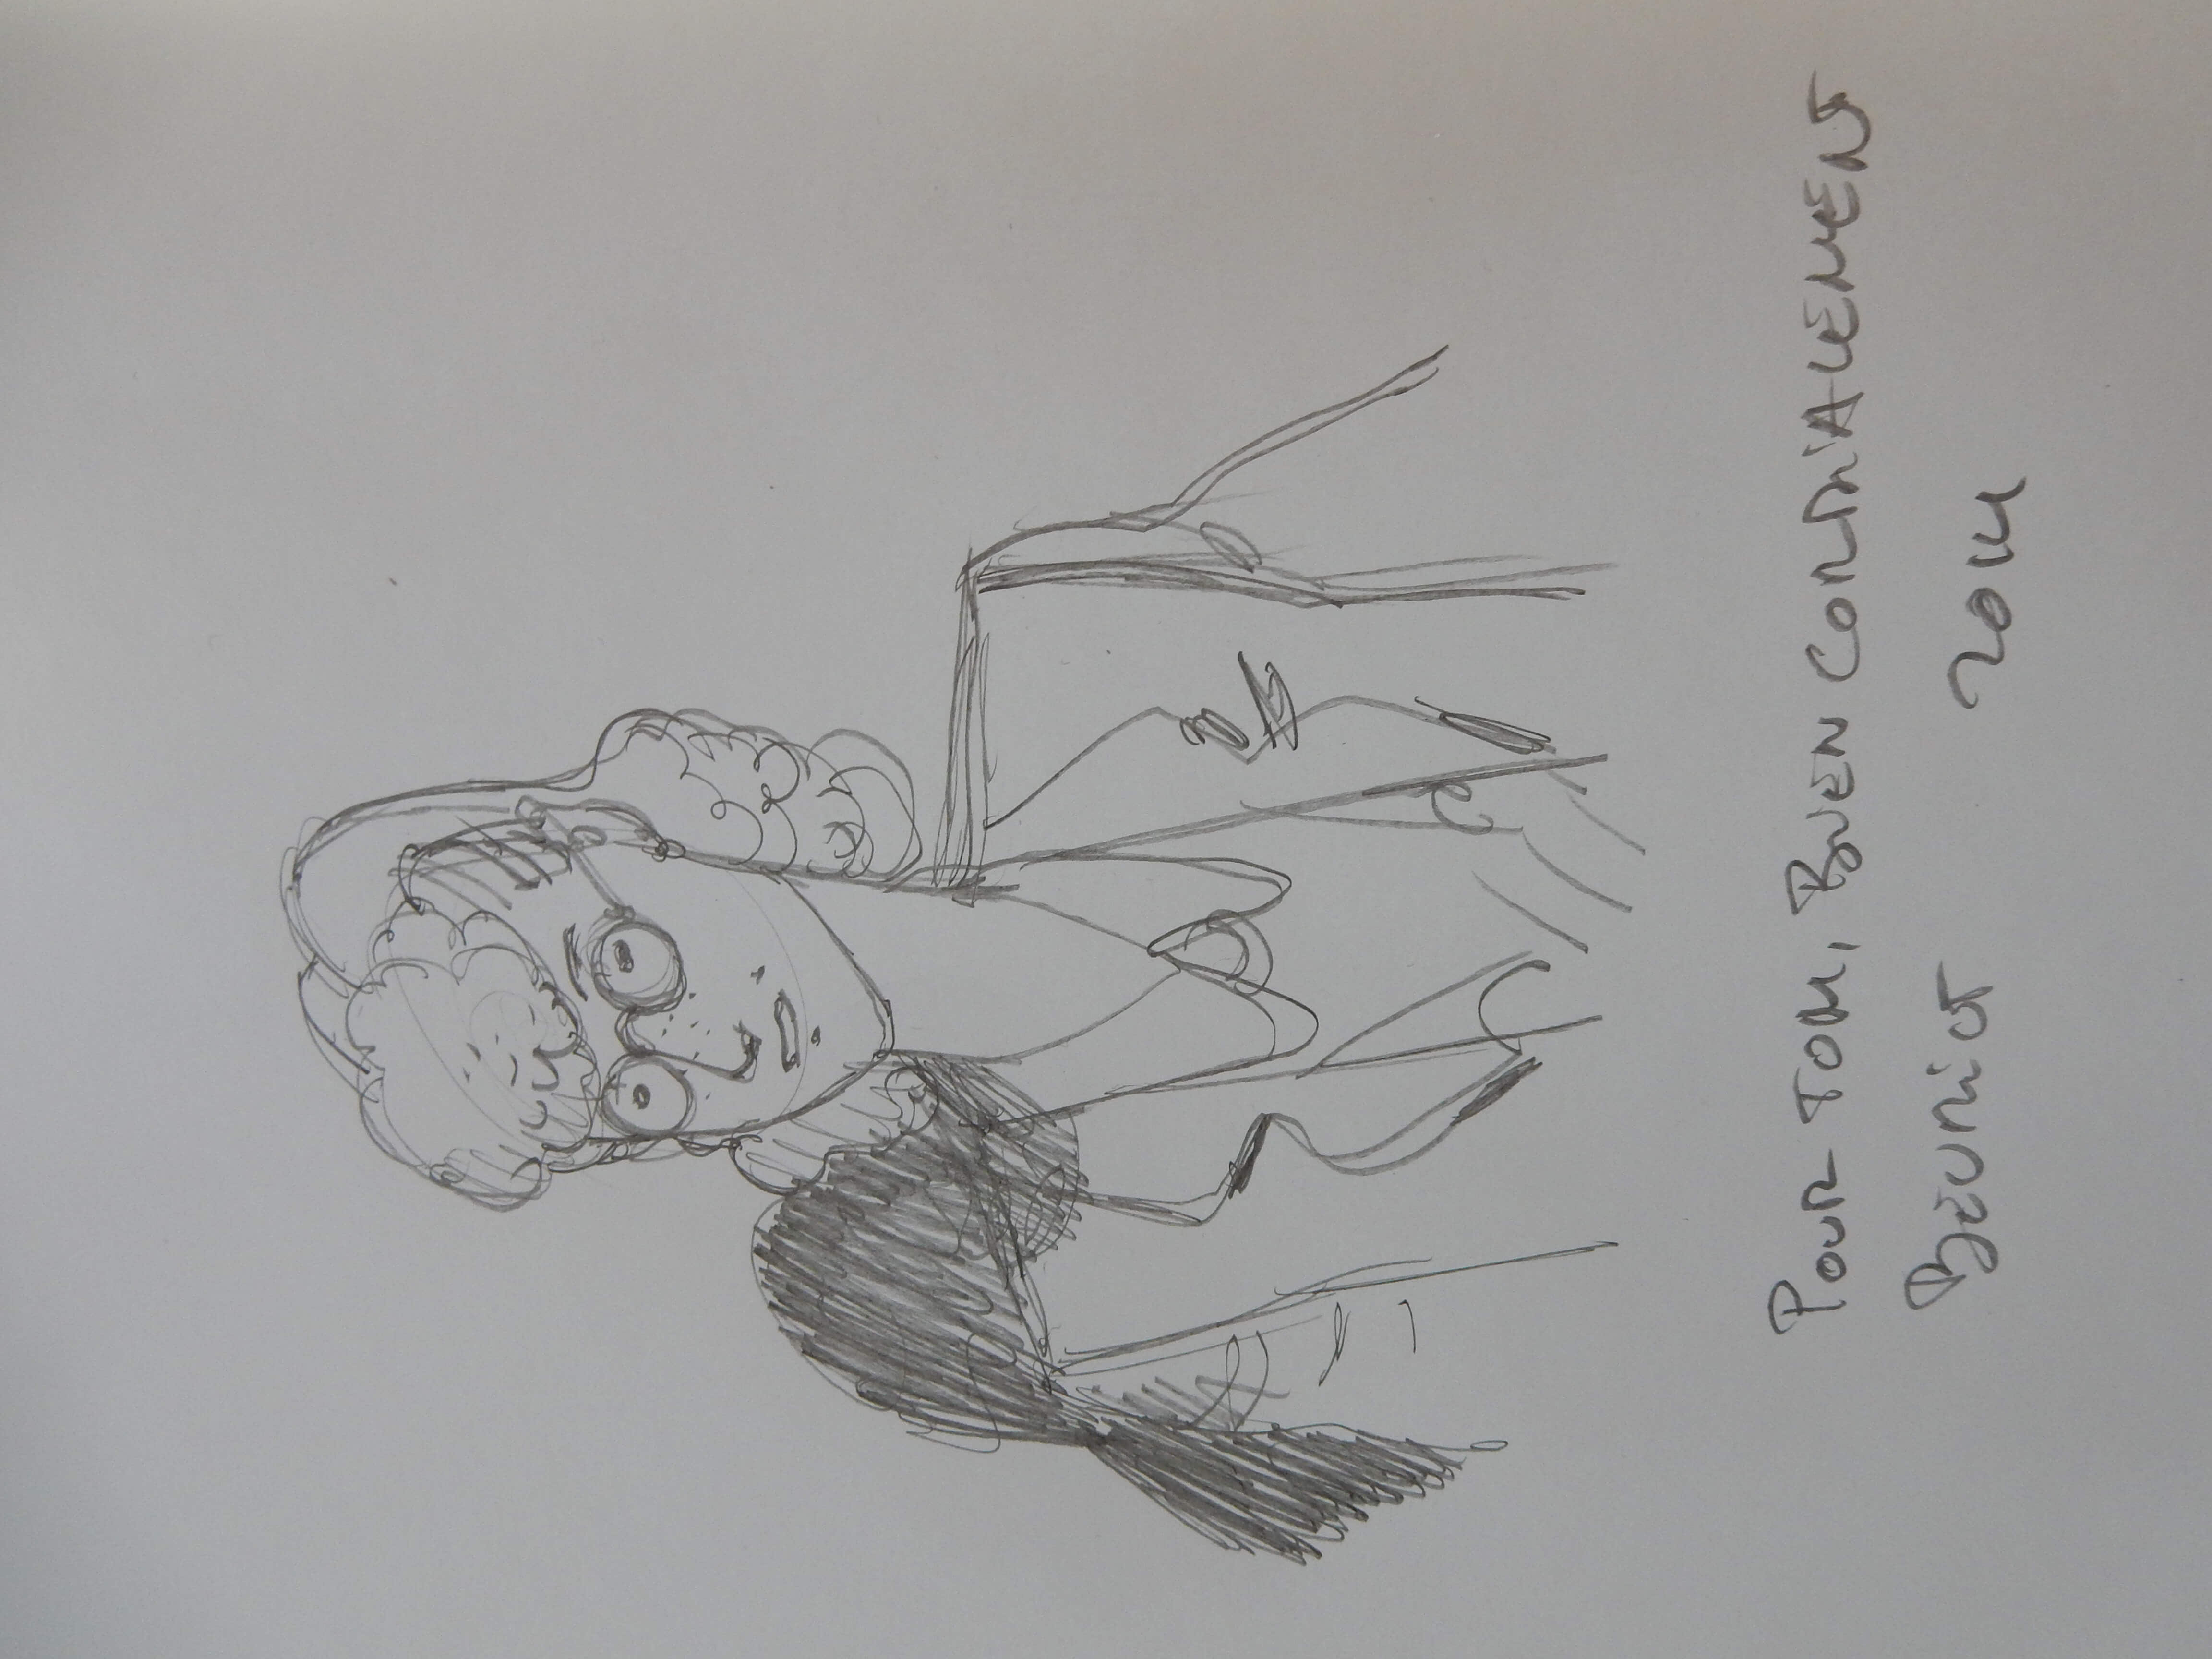 POUR TOM, BIEN CORDIALEMENT
BEURIOT 2014